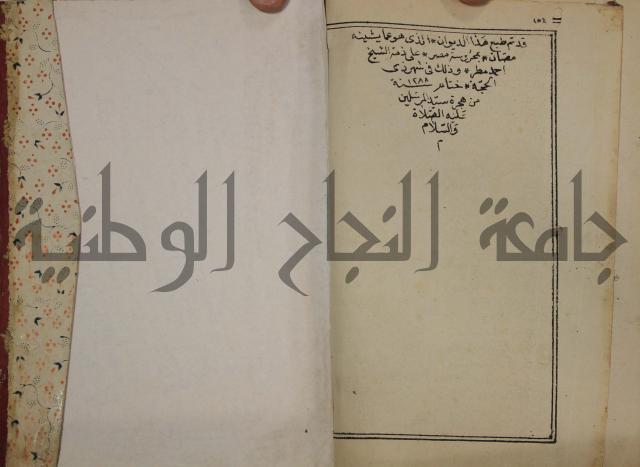 ١٥٤
قد تم طبع هذا الديوان * الذى هو عما يشينه
مصان * بمحروسة مصر * على ذمة الشيخ
احمد مطر * وذلك فى شهر ذى
الحجة * ختام سنة ١٢٨٨
من هجرة سيد المرسلين
عليه الصلاة
والسلام
م
جامعة النجاح الوطنية